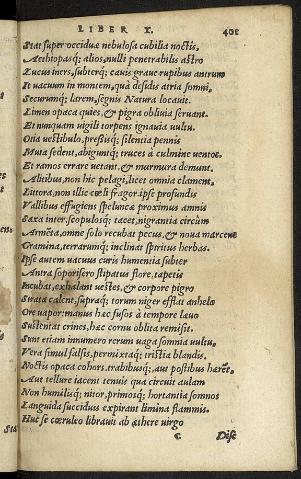 LIBER X. 401
Stat super occidua nebulosa cubilia noctis,
Aethiopasq; alios, nulli penetrabilis astro
Lucus iners, subterq; cauis graue rupibus antrum
It uacuum in montem, quà desidis atria somni,
Securumq; larem, segnis Natura locauit.
Limen opaca quies, & pigra obliuia seruant.
Et nunquam uigili torpens ignauia uultu.
Otia uestibulo, pressisq; silentia pennis
Muta sedent, abiguntq; truces à culmine uentos.
Et ramos errare uetant, & murmura demunt.
Alitibus, non hic pelagi, licet omnia clament,
Littora, non illic cœli fragor. ipse profundis
Vallibus effugiens speluncæ proximus amnis
Saxa inter, scopulosq; tacet, nigrantia circùm
Armēta, omne solo recubat pecus, & noua marcent
Gramina, terrarumq; inclinat spiritus herbas.
Ipse autem uacuus curis humentia subter
Antra soporifero stipatus flore, tapetis
Incubat, exhalant uestes, & corpore pigro
Strata calent, supraq; torum niger efflat anhelo
Ore uapor: manus hæc fusos à tempore læuo
Sustentat crines, hæc cornu oblita remisit.
Sunt etiam innumero rerum uaga somnia uultu,
Vera simul falsis, permixtaq; tristia blandis.
Noctis opaca cohors, trabibusq; aut postibus hærēt,
Aut tellure iacent tenuis qua circuit aulam
Non humilisq; nitor, primosq; hortantia somnos
Languida succiduis expirant limina flammis.
Huc se cœruleo librauit ab æthere uirgo
c Disc